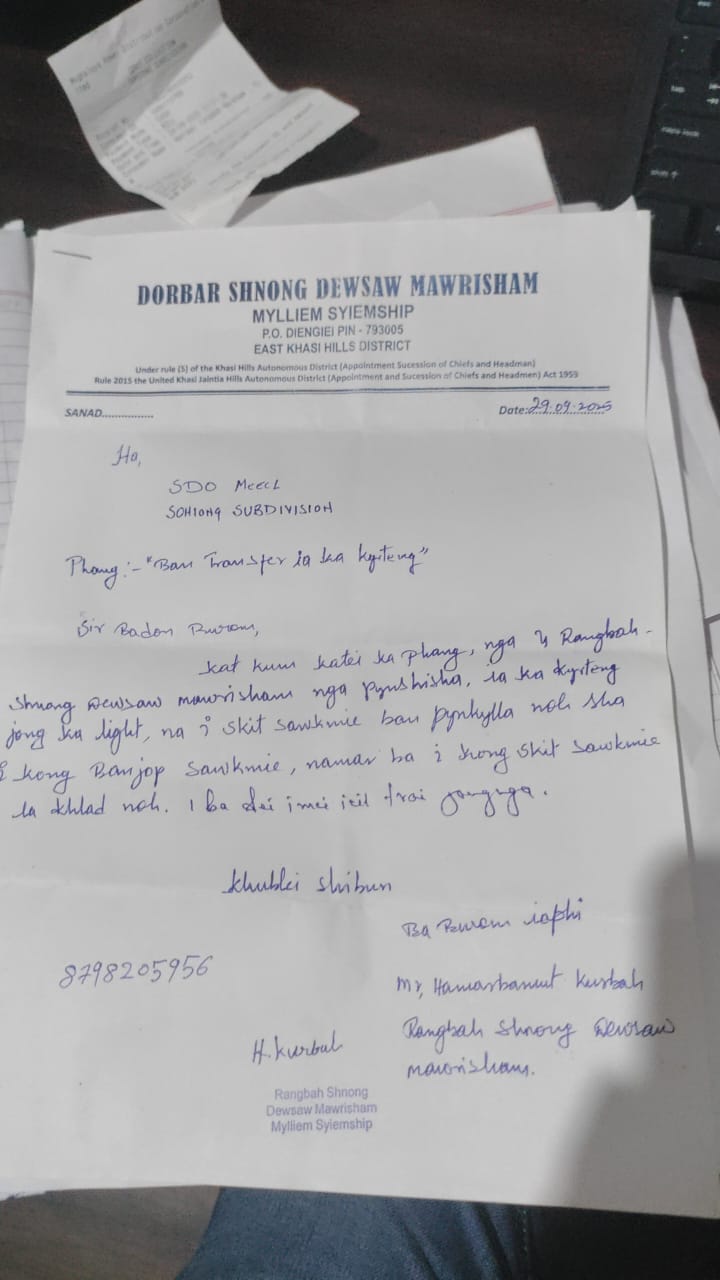 DORBAR SHNONG DEWSAW MAWRISHAM
MYLLIEM SYIEMSHIP
P.O. DIENGIEI PIN - 793005
EAST KHASI HILLS DISTRICT
Under rule (5) of the Khasi Hills Autonomous District (Appointment Sucession of Chiefs and Headman)
Rule 2015 the United Khasi Jaintia Hills Autonomous District (Appointment and Sucession of Chiefs and Headmen) Act 1959
SANAD................
Date:29.09.2025
Ha,
SDO MeecL
SOHIONG SUBDIVISION
Phang:- "Ban Transfer ia ka kyrteng"
Sir Badon Burom,
Kat kum katei ka phang, nga u Rangbah-
Shnong Dewsaw mawrisham nga pynshisha, ia ka kyrteng
jong ka light, na i skit sawkmie ban pynkylla noh sha
i kong Banjop sawkmie, namar ba i kong skit sawkmie
la khlad noh. I ba dei i mei trai jongnga.
Khublei shibun
Ba Burom iaphi
8798205956
Mr, Kurbah
H. Kurbah
Rangbah Shnong Dewsaw
mawrisham.
Rangbah Shnong
Dewsaw Mawrisham
Mylliem Syiemship